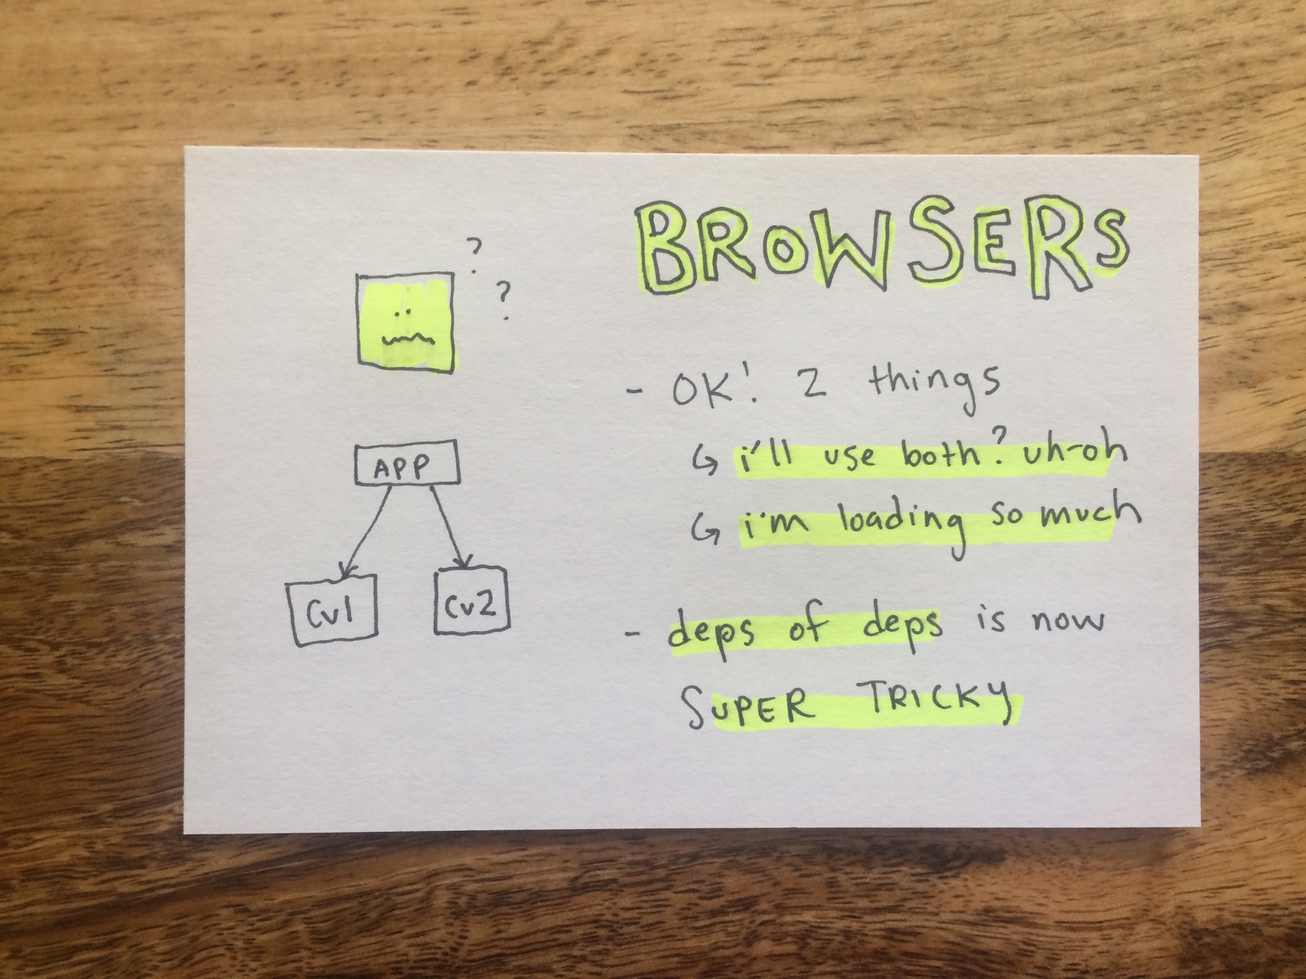 ?
?
APP
Cv1 Cv2
BROWSERS
- OK! 2 things
↳ i'll use both? uh-oh
↳ i'm loading so much
- deps of deps is now
SUPER TRICKY